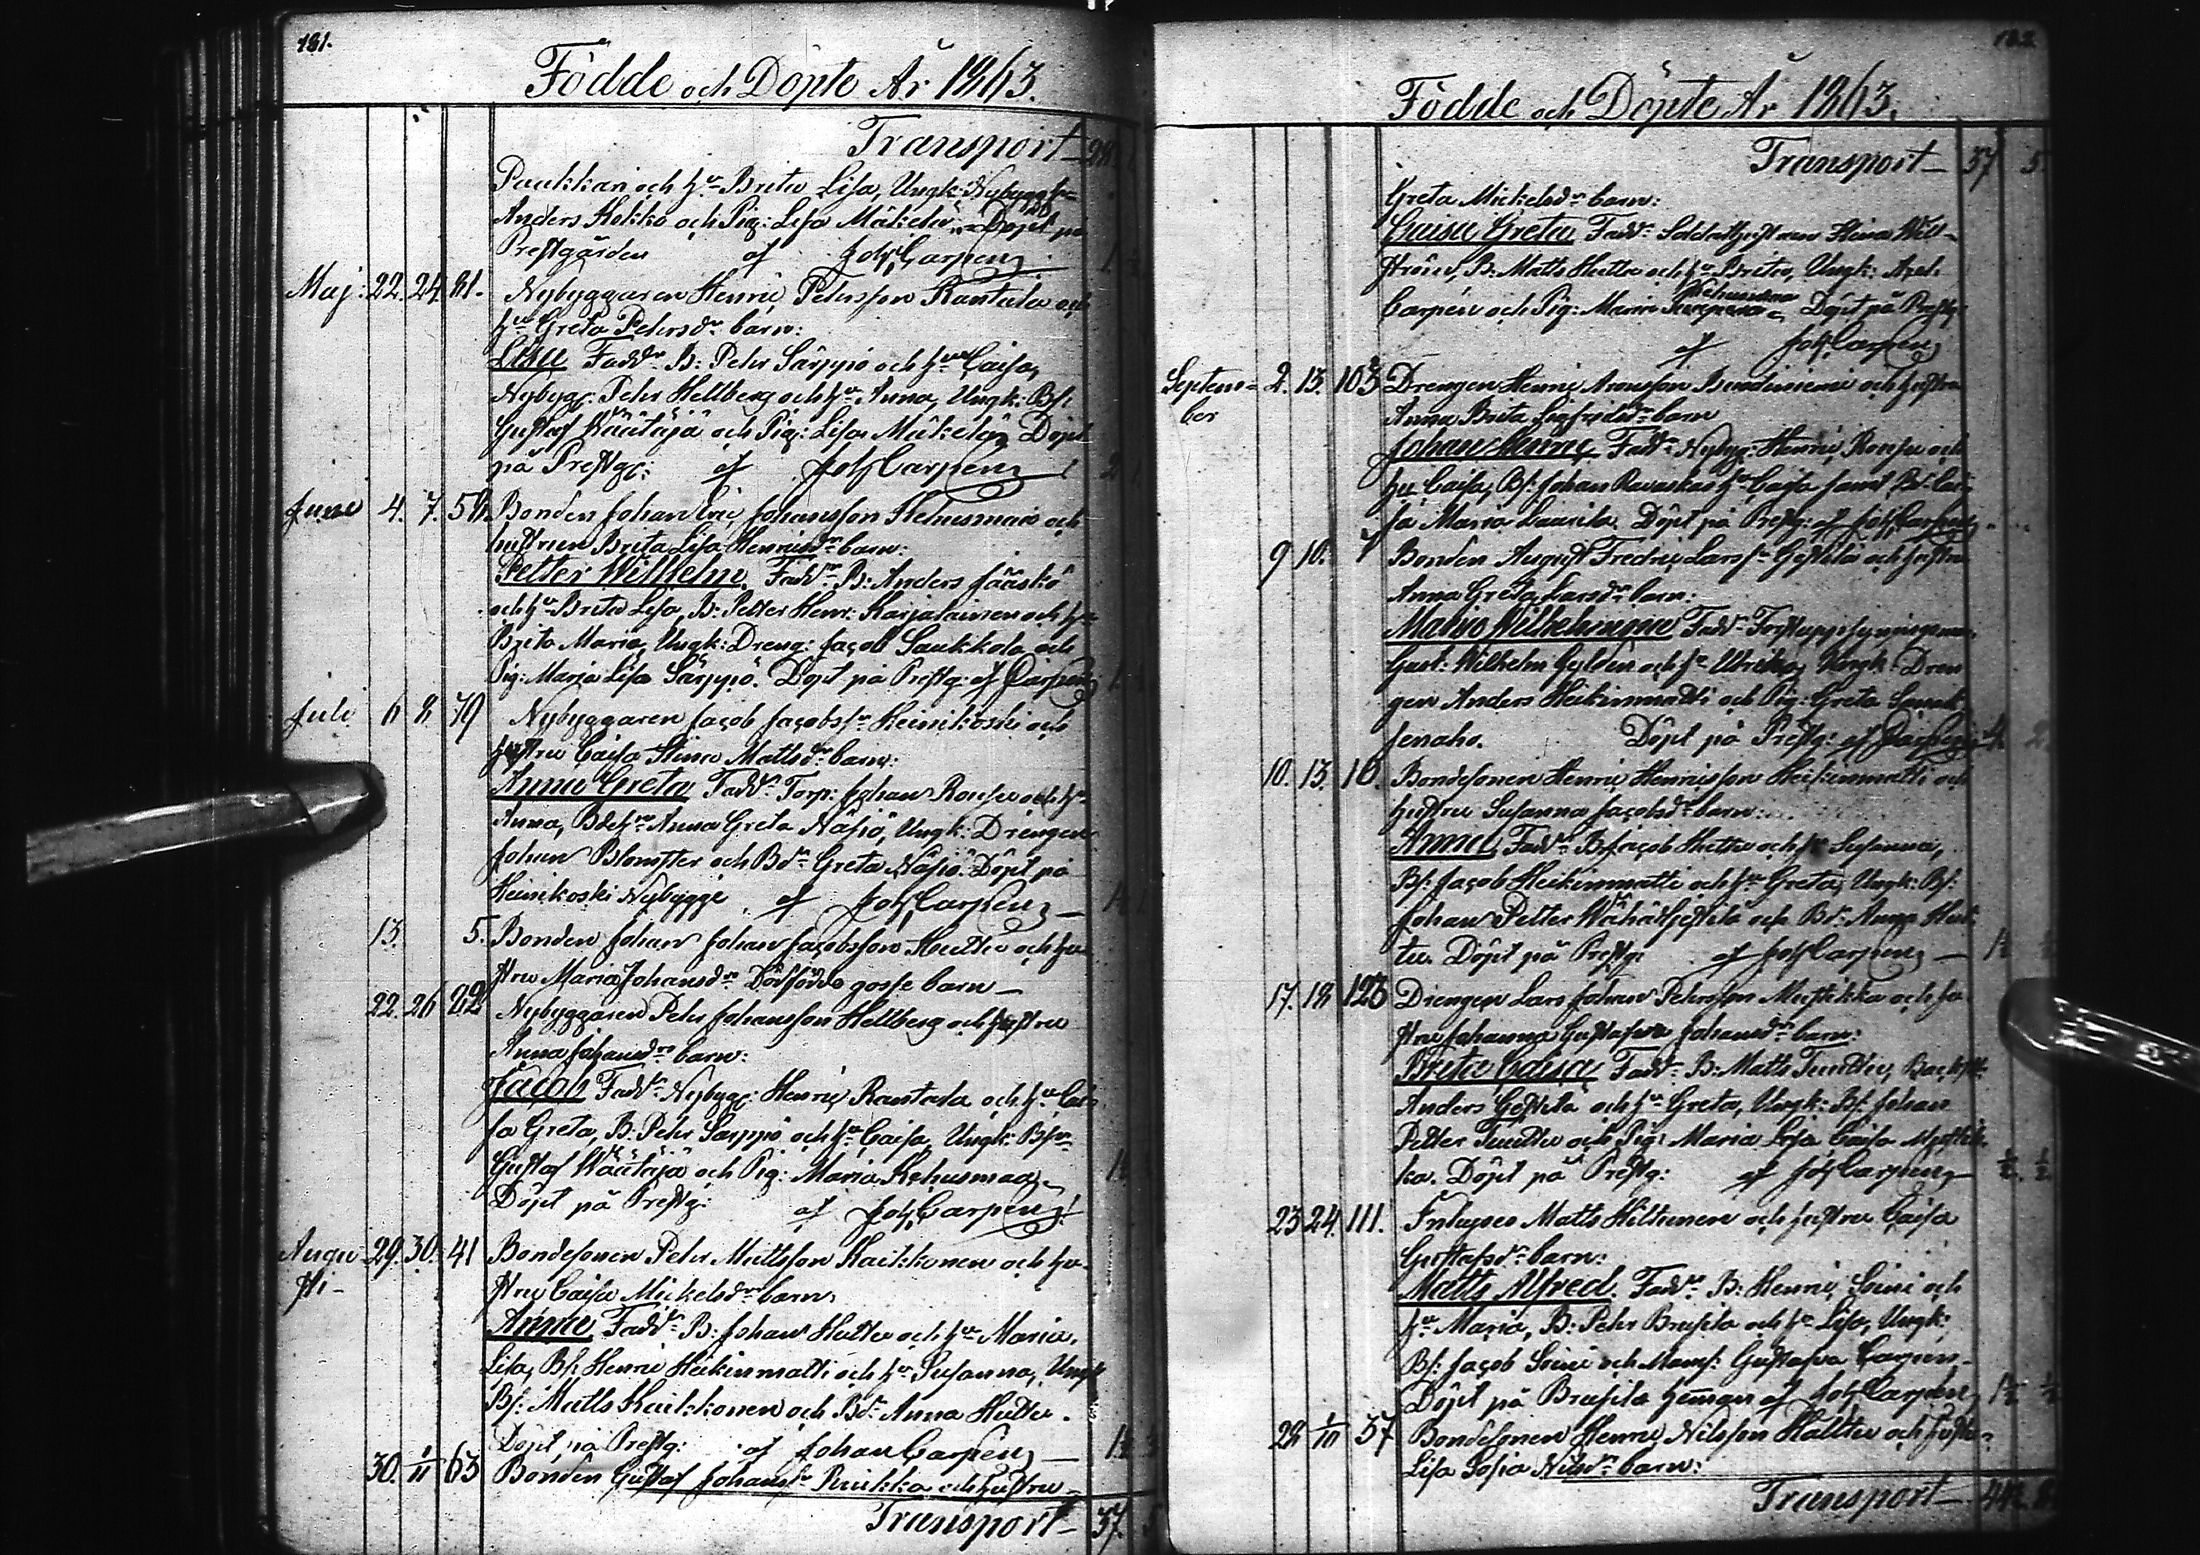 181.
Födde och Döpte År 1863.
Transport 28
och hu Brita Lisa, Ungk: Nybygg
Anders Hokko och Pig: Lisa Mäkelä Döpt på
Prestgården af Joh Carpen
Maj: 22. 24 81. Nybyggaren Henric Petersson Rantala och
hu Greta Petersdr barn:
Lisa Faddr B: Pehr Särppö och hu Caisa,
Nybygg: Pehr Hellberg och hu Anna, Ungk: Bs:
Gustaf Väätäjä och Pig: Lisa Mäkelä Döpt
på Prestg: af Joh Carpen
Juni 4. 7. 58 Bonden Johan Eric Johansson Kehusmaa och
hustrun Brita Lisa Henricsdr barn:
Petter Wilhelm Faddr B: Anders Jääskö
och hu Brita Lisa, B: Petter Henr: Karjalainen och hu
Brita Maria, Ungk: Dreng: Jacob Saukkola och
Pig: Maria Lisa Särppö. Döpt på Prestg: af Carpen
Juli 6 8 79 Nybyggaren Jacob Jacobsson Heinikoski och
hustru Caisa Stina Mattsdr barn:
Anna Greta Faddr Torp: Johan Rousu och hu
Anna, Anna Greta Näsiö, Ungk: Drengen
Johan Blomster och Bdr Greta Näsiö. Döpt på
Heinikoski Nybygge af Joh Carpen
13. 5. Bonden Johan Johan Jacobsson Hutta och hu-
stru Maria Johansdr Dödfödde gosse barn
22. 26 82 Nybyggaren Pehr Johansson Hellberg och hustru
Anna Johansdr barn:
Jacob Faddr Nybygg: Henric Rantala och hu Cai-
sa Greta, B: Pehr Särppö och hu Caisa, Ungk: Bs
Gustaf Väätäjä och Pig: Maria Kehusmaa
Döpt på Prestg: af Joh Carpen
Augu- 29. 30. 41 Bondesonen Pehr Mattsson Kaikkonen och hu-
sti stru Caisa Mickelsdr barn:
Anna Faddr B: Johan Hutta och hu Maria
Lisa, Bs: Henric Heikinmatti och hu Susanna, Ungk
Bs: Matts Kaikkonen och Bdr Anna Hutta.
Döpt på Prestg: af Johan Carpen
30. 1/11 63 Bonden Gustaf Johans och hustru
Transport 37.
Födde och Döpte År 1863.
Transport 37 5
Greta Mickelsdr barn:
Caisa Greta Faddr Stina Wik-
ström, B: Matts Hutta och hu Brita, Ungk: Axel
Carpén och Pig: Maria Kehusmaa Döpt på Prestg:
af Joh Carpen
Septem- 2. 13. 103 Drengen Henric och hustru
ber Anna Brita Sigfridsdr barn
Johan Henric Faddr Nybygg: Henric Rousu och
hu Caisa, Bs: Johan hu Caisa samt Cai-
sa Maria Laurila. Döpt på Prestg: af Joh Carpen
9 10. 7 Bonden August Fredric Larss och hustru
Anna Greta Larsdr barn:
Maria Wilhelmina Faddr Forstuppsyningsman
Gust: Wilhelm Gyldén och hu Ulrika, Ungk: Dren-
gen Anders Heikinmatti och Pig: Greta
Döpt på Prestg: af Carpen
10. 13. 10. Bondesonen Henric Henricsson Heikinmatti och
hustru Susanna Jacobsdr barn:
Anna Faddr B: Jacob Hutta och hu Susanna,
Bs: Jacob Heikinmatti och hu Greta, Ungk: Bs:
Johan Petter och Bdr Anna Hut-
ta. Döpt på Prestg: af Joh Carpen
17. 18 123 Drengen Lars Johan Petersson Mustikka och hu-
stru Johanna Gustafva Johansdr barn:
Brita Edisa Faddr B: Matts
Anders och hu Greta, Ungk: Bs: Johan
Petter och Pig: Maria Lisa Caisa Mustik-
ka. Döpt på Prestg: af Joh Carpen
23 24. 111. Inhyses Matts Hiltunen och hustru Caisa
Gustafsdr barn:
Matts Alfred. Faddr B: Henric Soini och
hu Maria, B: Pehr Brusila och hu Lisa, Ungk:
Bs: Jacob Soini och Mams: Gustafva Carpen.
Döpt på Brusila hemman af Joh Carpen
28 1/10 37 Bondesonen Henric Nilsson och hustru
Lisa Sofia Nilsdr barn:
Transport